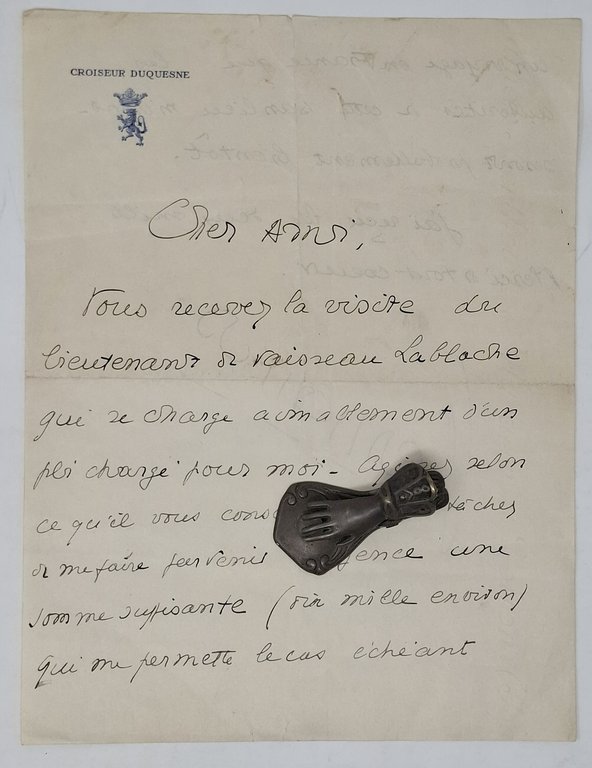 CROISEUR DUQUESNE
Cher Ami,
Vous recevez la visite du
lieutenant de vaisseau Lablache
qui se charge aimablement d'un
pli chargé pour moi - Agissez selon
ce qu'il vous tâchez
de me faire parvenir une
somme suffisante (dix mille environ)
qui me permette le cas échéant